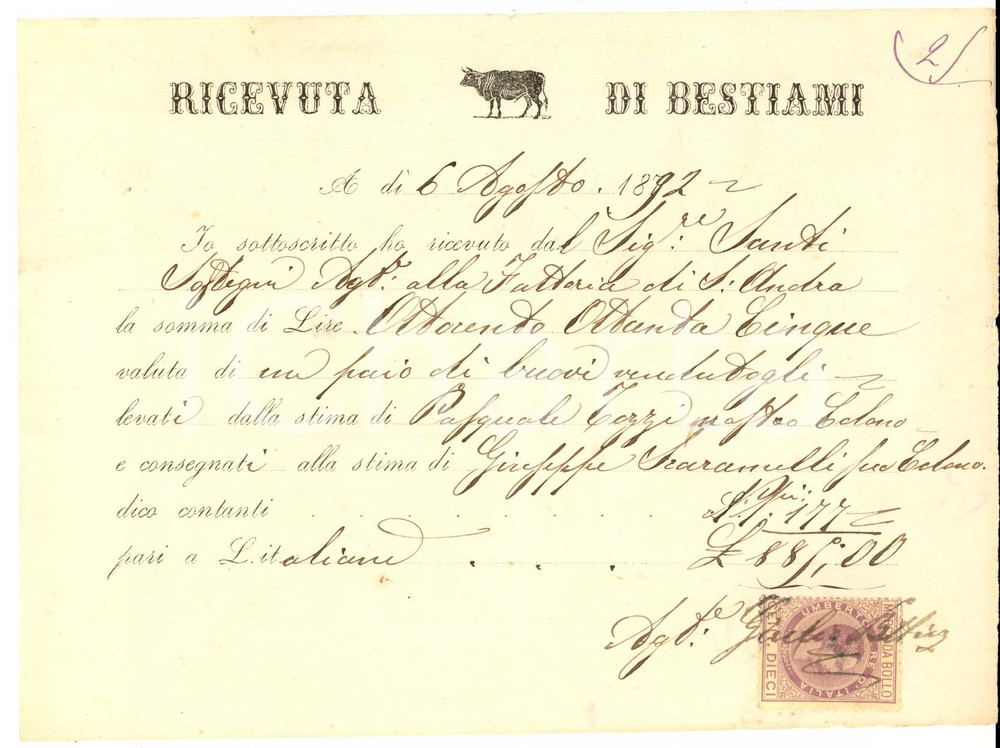 2
RICEVUTA DI BESTIAMI
A dì 6 Agosto. 1892
Io sottoscritto ho ricevuto dal Sig.re Santi
Sostegni Agt.e alla Fattoria di S. Andra
la somma di Lire Ottocento Ottanta Cinque
valuta di un paio di buovi vendutogli
levati dalla stima di Pasquale Tozzi nostro Colono
e consegnati alla stima di Giuseppe Scaramelli suo Colono.
dico contanti . . . . . . . 177
pari a L. italiane . . . £ 885,00
Agt.e Giulio
MARCA DA BOLLO
UMBERTO I RE D'ITALIA
CENT. DIECI